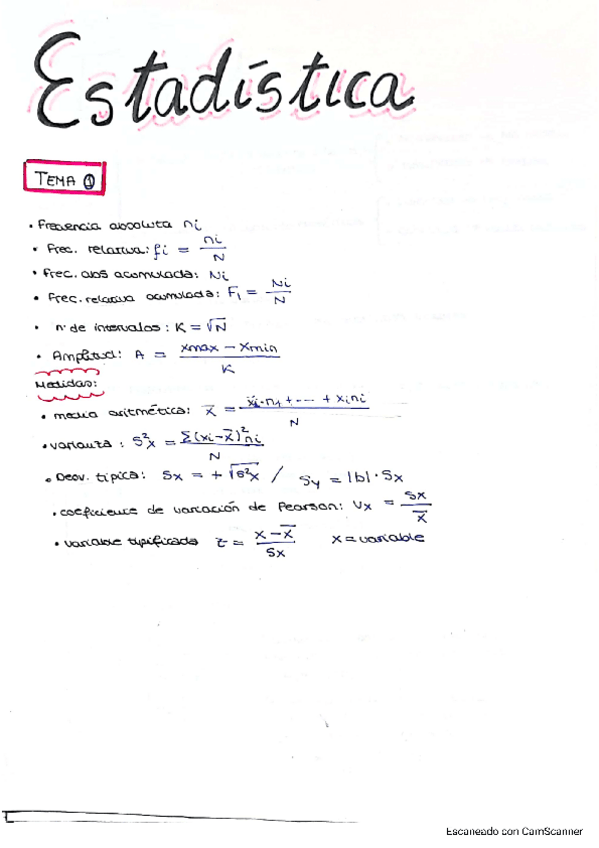 Estadística
TEMA ①
• Frecuencia absoluta ni
• Frec. relativa: fi = ni / N
• Frec. abs acumulada: Ni
• Frec. relativa acumulada: Fi = Ni / N
• nº de intervalos: K = √N
• Amplitud: A = xmax − xmin / K
Medidas:
• media aritmética: x̄ = xi·n1 + --- + xini / N
• varianza: S²x = Σ(xi−x̄)²ni / N
• Desv. típica: Sx = +√S²x / Sy = |b|·Sx
• coeficiente de variación de Pearson: Vx = Sx / x̄
• variable tipificada z = x−x̄ / Sx x=variable
Escaneado con CamScanner